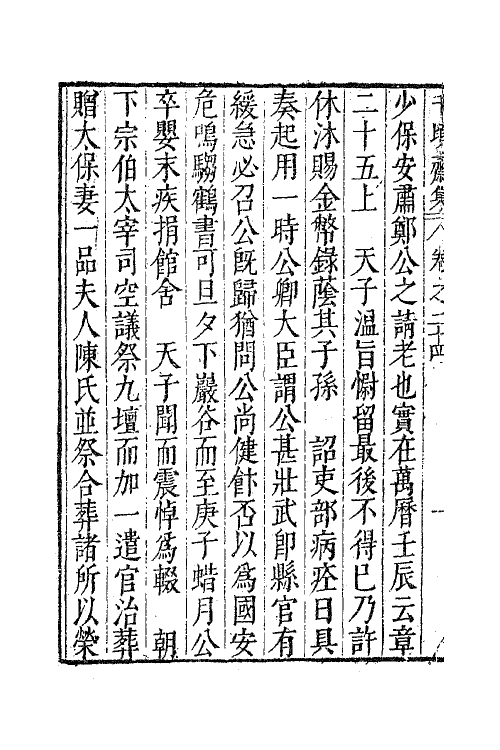 千頃齋集 卷之二十四
少保安肅鄭公之請老也實在萬曆壬辰云章
二十五上　天子溫旨慰留最後不得已乃許
休沐賜金幣錄蔭其子孫　詔吏部病痊日具
奏起用一時公卿大臣謂公甚壯武即縣官有
緩急必召公既歸猶問公尚健飰否以為國安
危鳴騶鶴書可旦夕下巖谷而至庚子蜡月公
卒嬰末疾捐館舍　天子聞而震悼為輟　朝
下宗伯太宰司空議祭九壇而加一遣官治葬
贈太保妻一品夫人陳氏並祭合葬諸所以榮